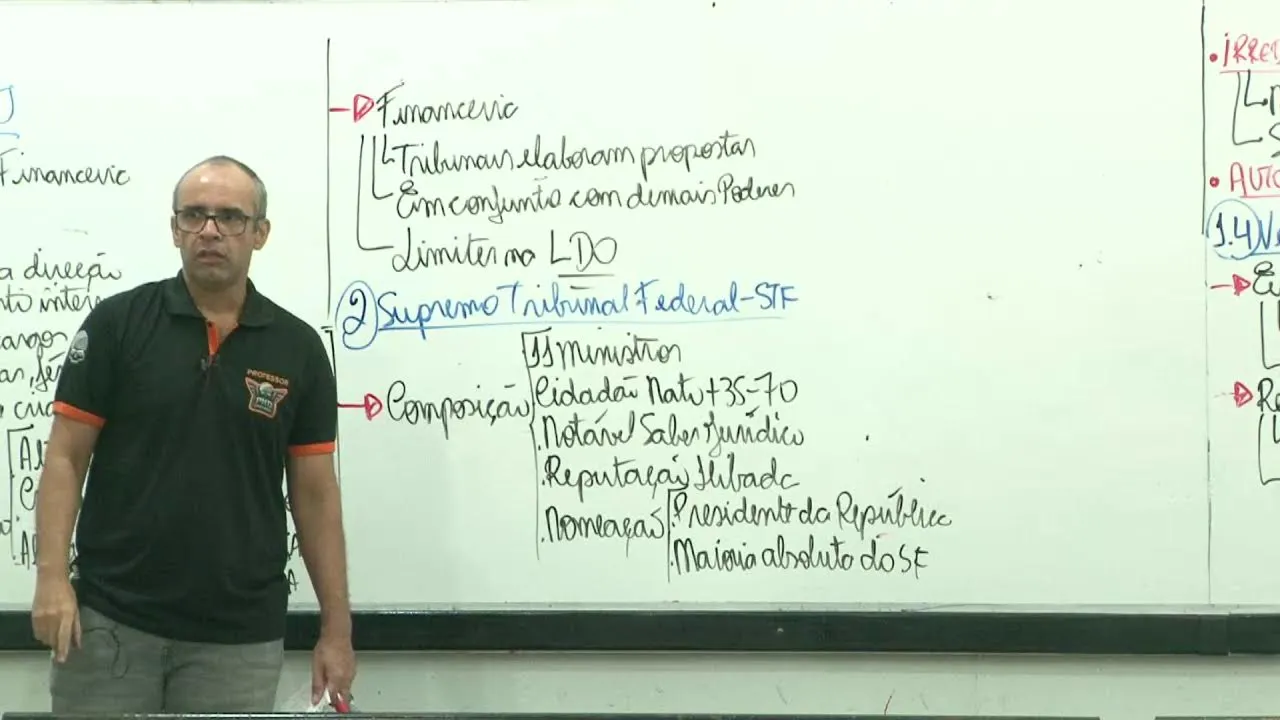 Financeira
a direção
argos
Financeira
Tribunais elaboram propostas
Em conjunto com demais Poderes
Limites na LDO
2 Supremo Tribunal Federal-STF
Composição
11 Ministros
Cidadão Nato +35-70
.Notável Saber Jurídico
.Reputação Ilibada
.Nomeação
.Presidente da República
.Maioria absoluta do SF
PROFESSOR
1.4